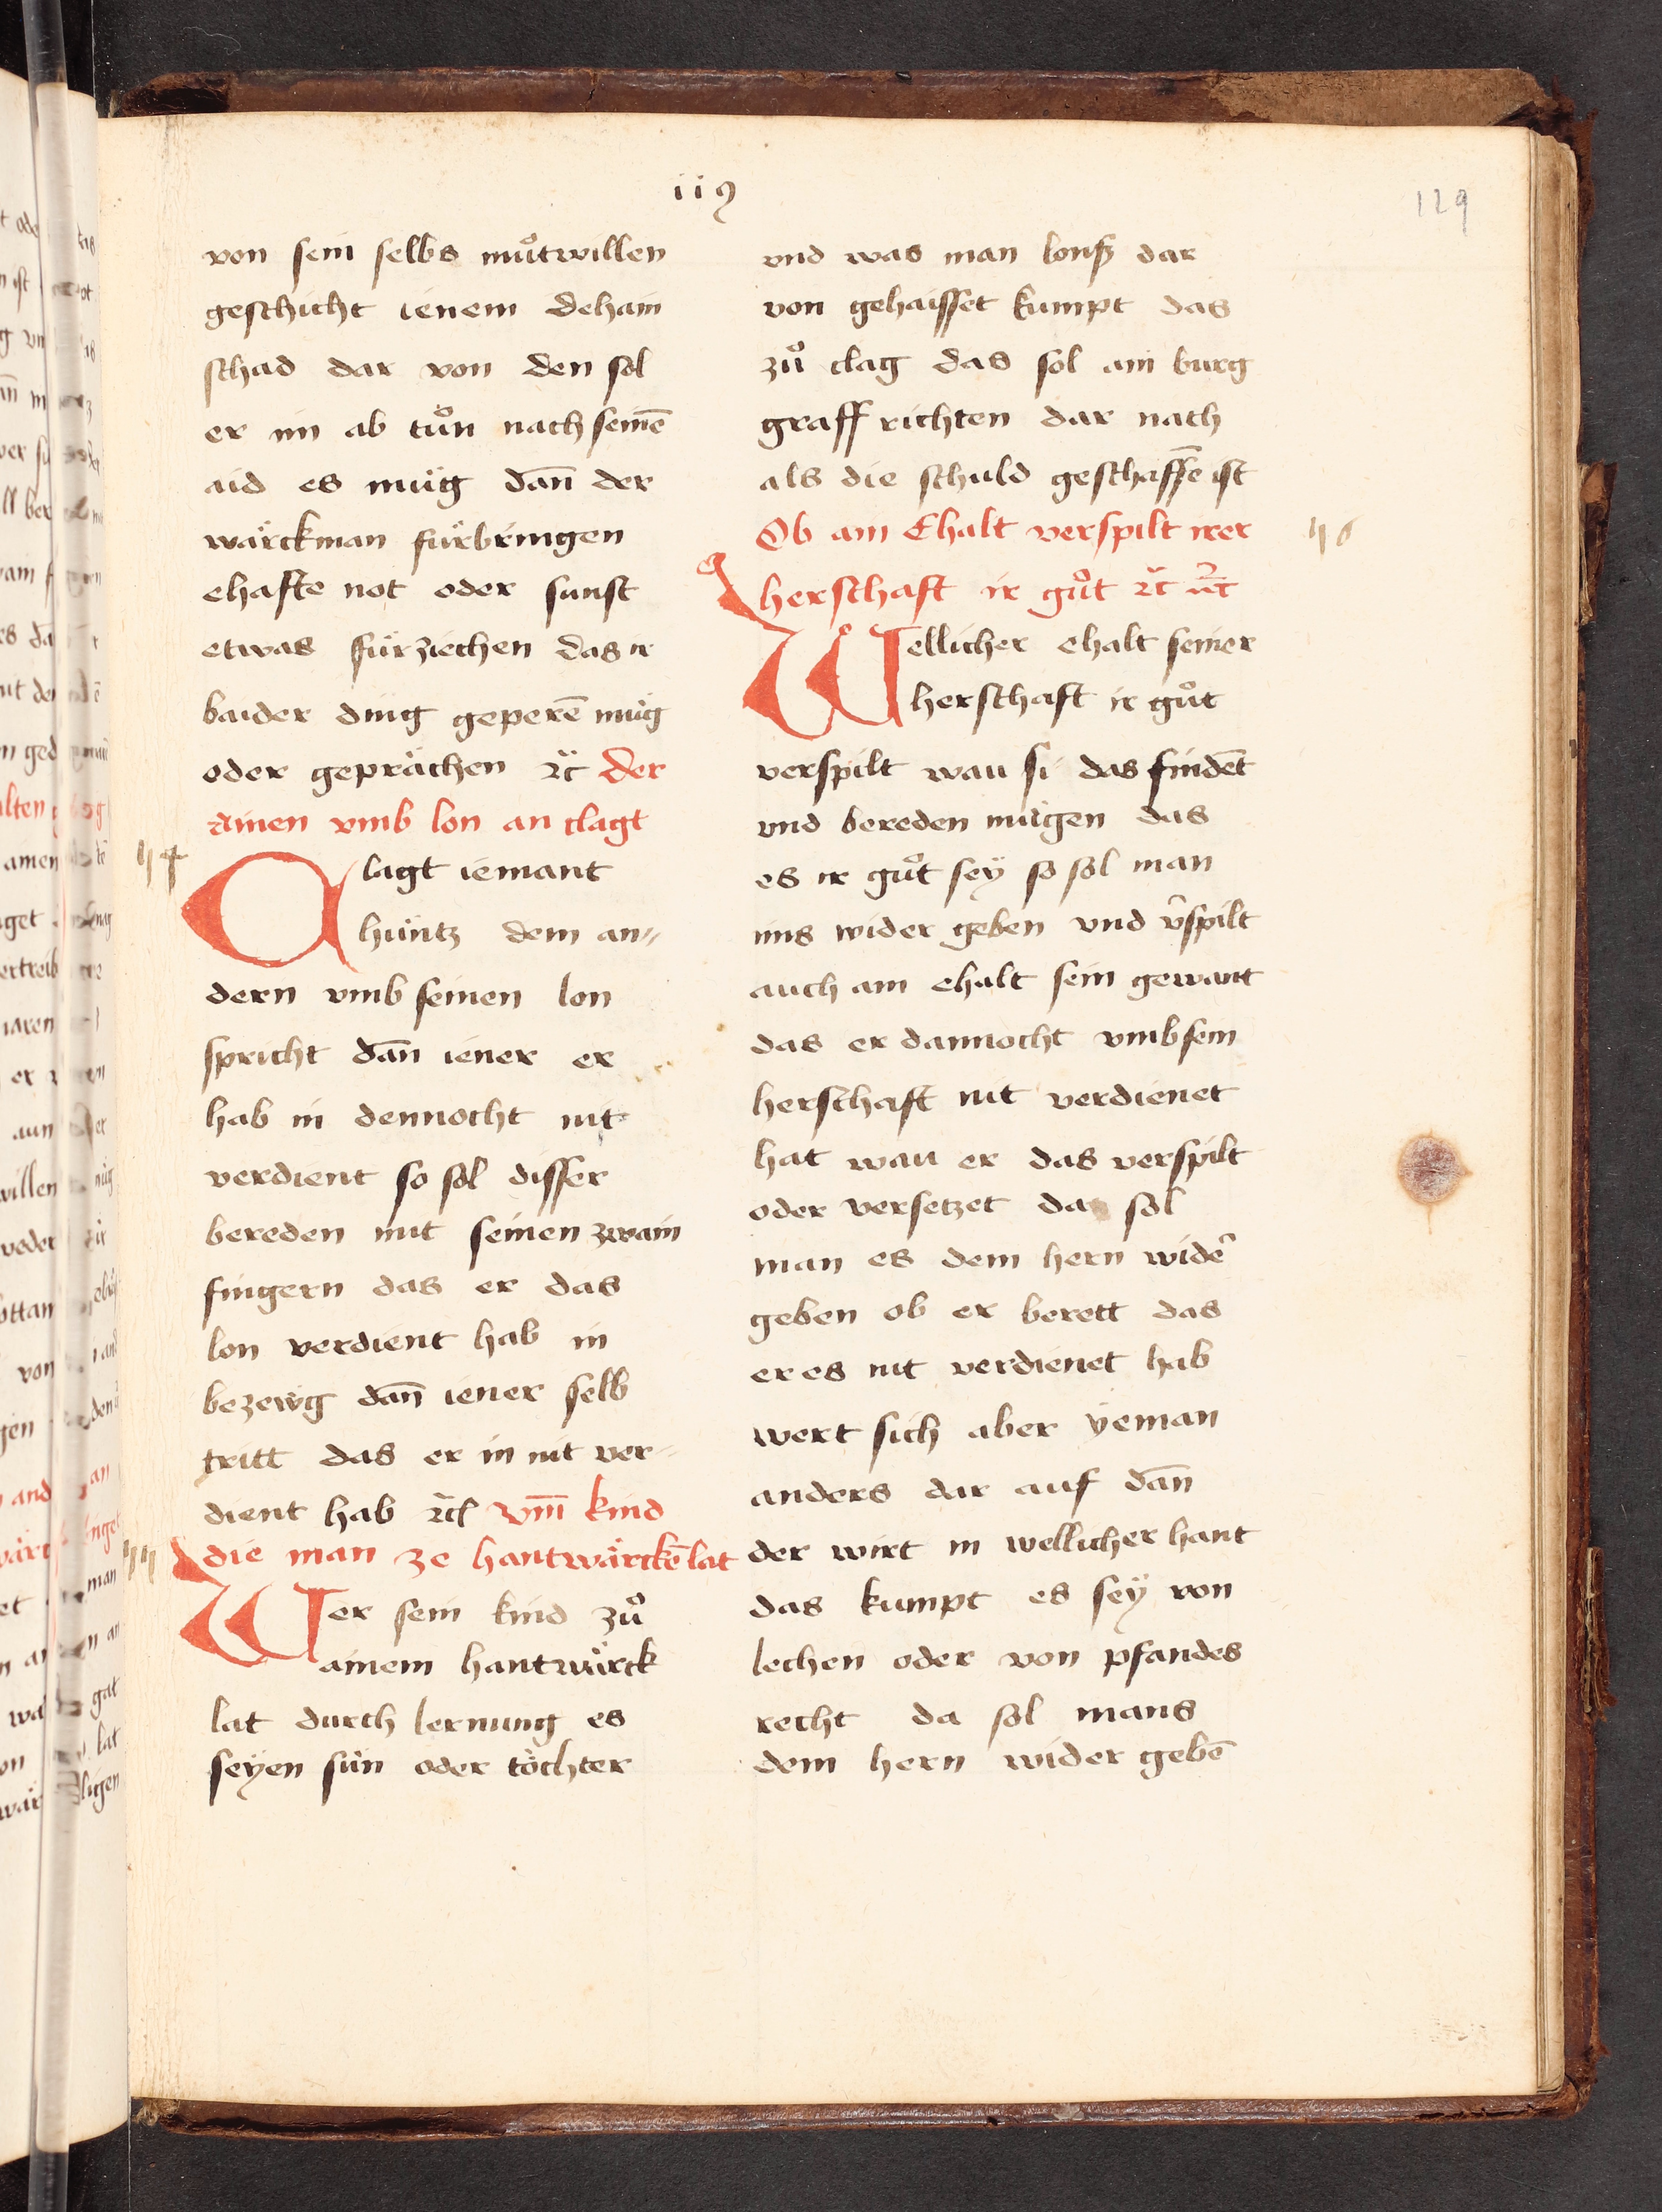 119
129
von sein selbs muͦtwillen
geschicht ienem dehain
schad dar von den sol
er im ab tuͦn nach seinē
aid es muͤg dañ der
waͤrckman fuͤrbringen
ehafte not oder sunst
etwas fuͤrziechen das ir
baider ding geperē muͤg
oder gepraͤchen ꝛc̈ der
ainen vmb lon an clagt
54
Clagt iemant
huͤntz dem an„
dern vmb seinen lon
spricht dañ iener er
hab in dennocht nit
verdient so sol disser
bereden mit seinen zwain
fingern das er das
lon verdient hab in
bezewg dañ iener selb
tritt das er in nit ver„
dient hab ꝛc̄ vm̄ kind
55 die man ze hantwaͤrckē lat
Wer sein kind zuͦ
ainem hantwaͤrck
lat durch lernung es
seyen suͤn oder toͤchter
vnd was man lonß dar
von gehaisset kumpt das
zuͦ clag das sol ain burg
graff richten dar nach
als die schuld geschaffē ist
Ob ain Ehalt verspilt irer 56
herschaft ir guͦt ꝛc̄
Wellicher ehalt seiner
herschaft ir guͦt
verspilt wau si das findēt
vnd bereden muͤgen das
es ir guͦt seÿ so sol man
ims wider geben vnd v̄spilt
auch ain ehalt sein gewant
das er dannocht vmb sein
herschaft nit verdienet
hat wau er das verspilt
oder versetzet da sol
man es dem hern widē
geben ob er berett das
er es nit verdienet hab
wert sich aber yeman
anders dar auf dañ
der wirt in wellicher hant
das kumpt es seÿ von
lechen oder von pfandes
recht da sol mans
dem hern wider gebē